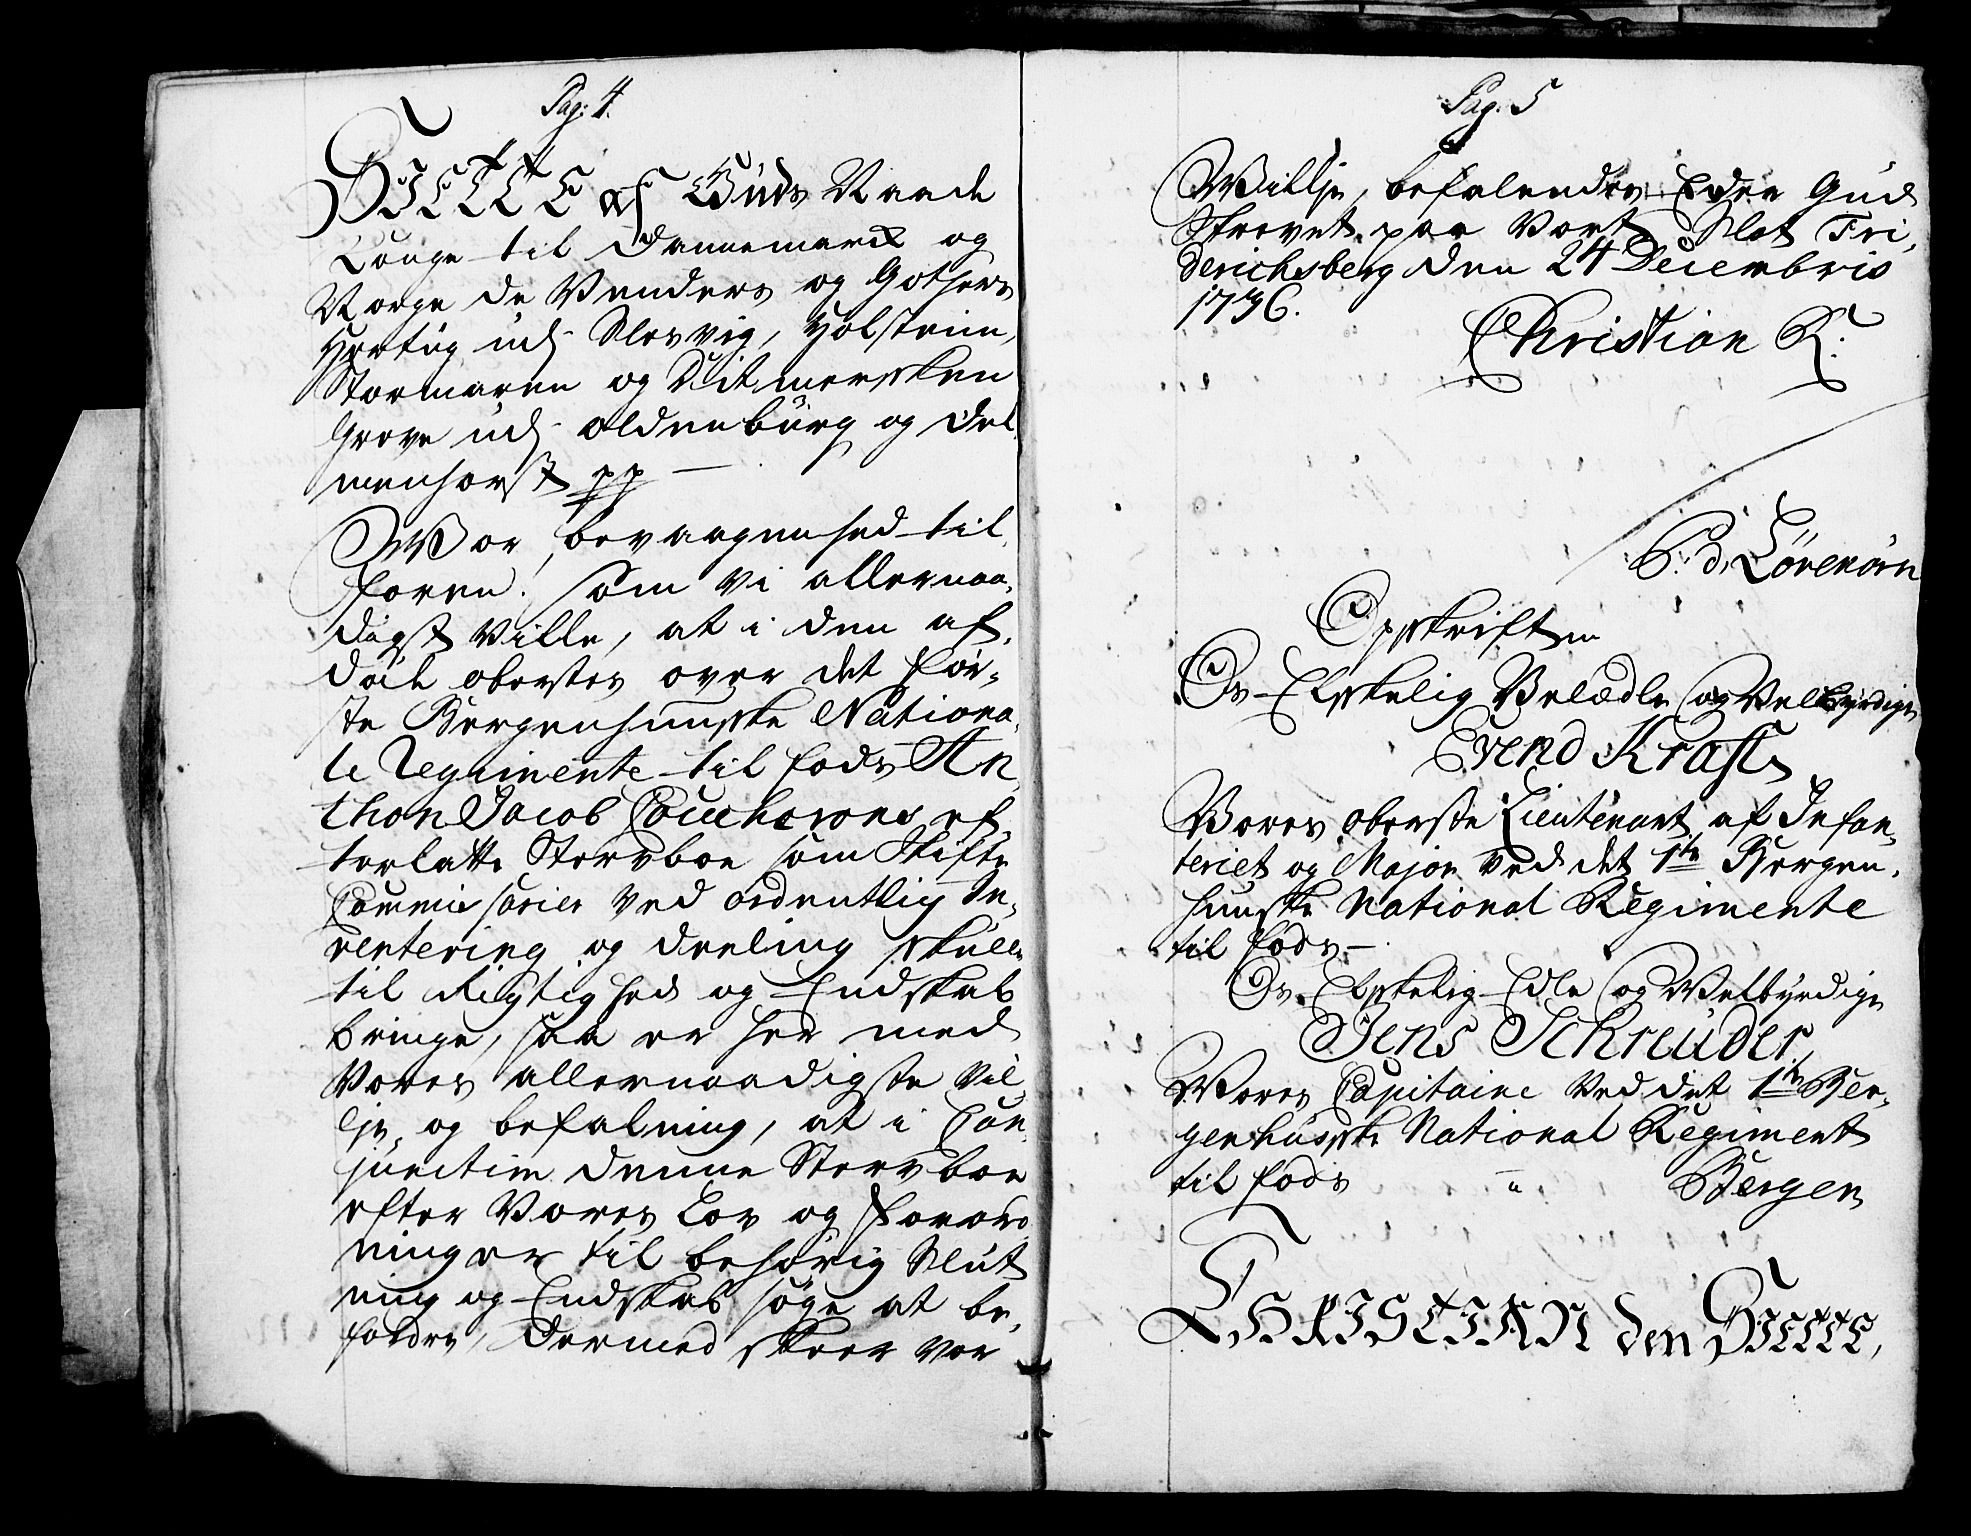 Pag: 4.
SIETTE af Guds Naade
Konge til Dannemarck og
Norge de Venders og Gothers
Hertug udj Slesvig, Holsteen,
Stormaren og Ditmersken
Greve udj Oldenburg og Del,
menhorst pp —
Wor bevaagenhed til,
foren! Som Vi allernaa,
digst Ville, at i den af,
døde Oberstes over det før,
ste Bergenhuuske Nationa,
le Regimente til fods An,
thon Jacob Coucherons ef,
terlatte Sterboe som Skifte
Commissarier ved ordentlig In,
ventering og deeling skulle
til Rigtighed og Endskab
bringe, saa er her med
Vores allernaadigste Vil,
lje, og befalning, at i Con,
junctim denne Sterboe
efter Vores Lov og Forord,
ninger til behørig Slut,
ning og Endskab søge at be,
fordre, Dermed skeer vor
Pag. 5
Willje, befalendes Eder Gud
Skrevet paa Vort Slot Fri,
derichsberg den 24 Decembris
1736.
Christian R:
P. d. Løvenørn
Opskriften
Os Elskelig Velædle og Velbyrdige
Svend Kraft
Vores Oberste Lieutenant af Infan,
teriet og Major ved det 1te Bergen,
huuske National Regimente
til fods —
Os Elskelig Edle og Welbyrdige
Jens Schreuder,
Wores Capitaine Ved det 1te Ber,
genhusske National Regiment
til fods " Bergen
CHRISTIAN den SIETTE,